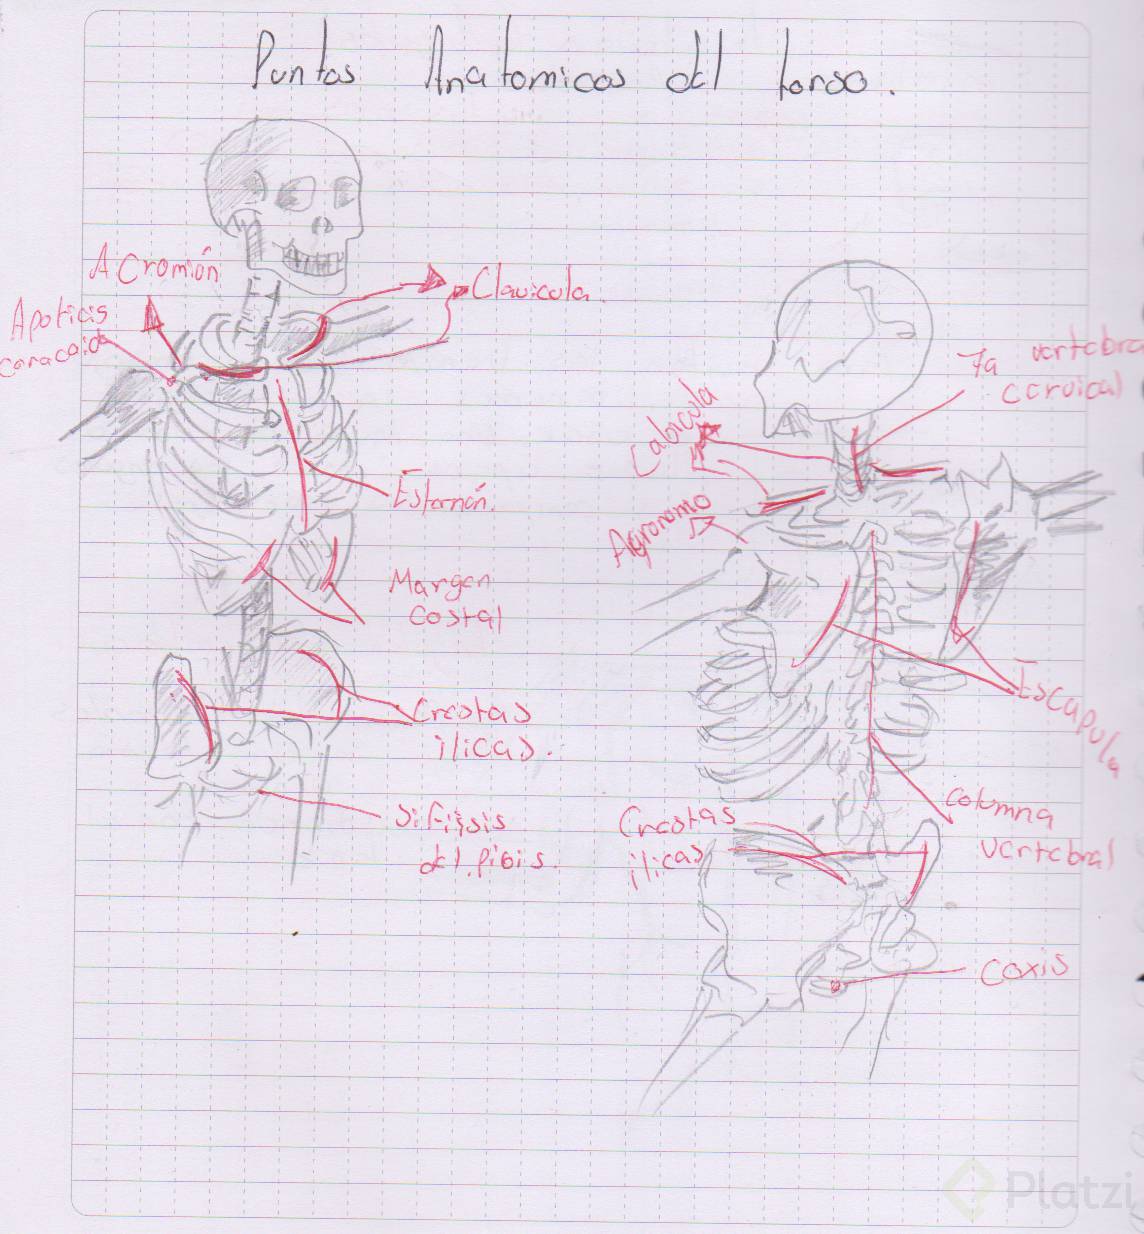 Puntos Anatomicos del torso.
Acromión
Apoficis
caracoide
Clavicula.
Esternón.
Margen
costal
Crestas
ilicas.
Sifisis
del pibis.
7a vertebra
cervical
Cabicula
Agronomio
Escapula
Columna
vertebral
Crestas
ilicas
Coxis
Platzi